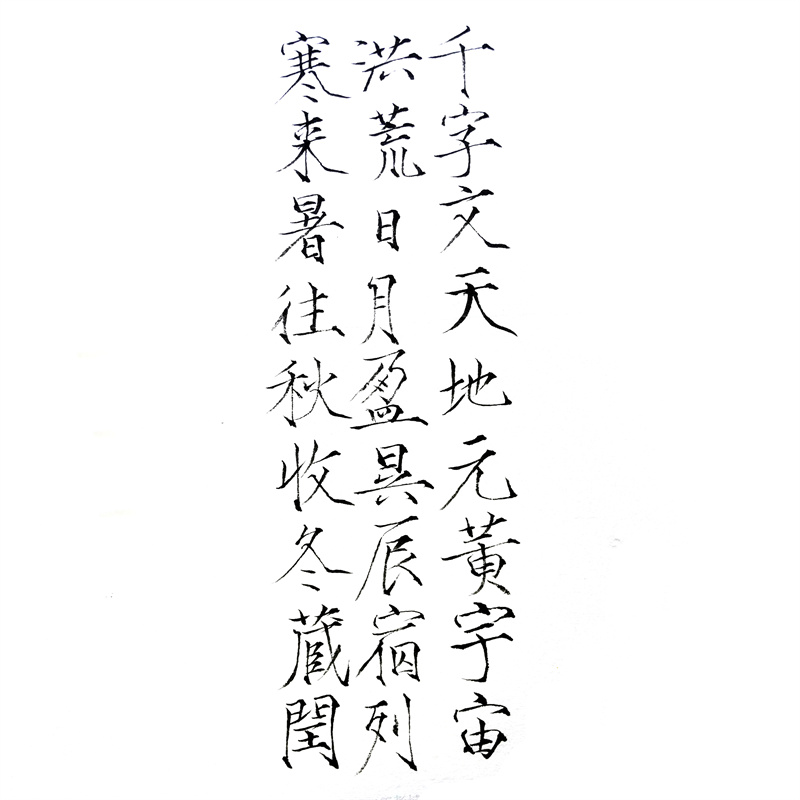 千字文天地元黃宇宙
洪荒日月盈昃辰宿列
寒来暑往秋收冬蔵閏